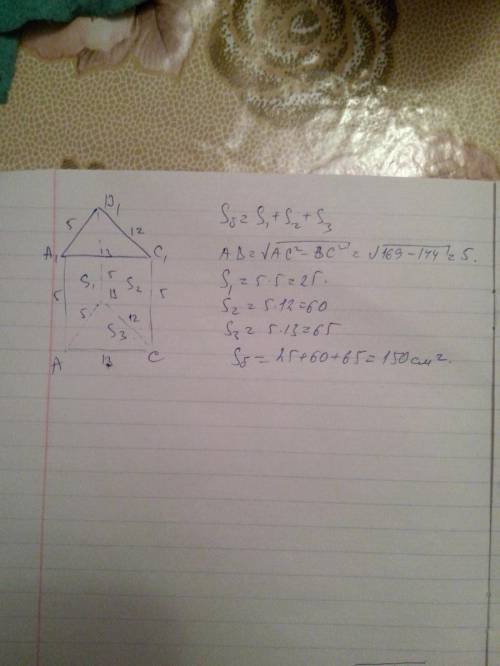 B₁
5 12
A₁ 13 C₁
S₁ 5 S₂
5 B 5
5 12
S₃
A 13 C
Sδ = S₁ + S₂ + S₃
AB = √AC² - BC² = √169 - 144 = 5.
S₁ = 5 · 5 = 25.
S₂ = 5 · 12 = 60
S₃ = 5 · 13 = 65
Sδ = 25 + 60 + 65 = 150 см².